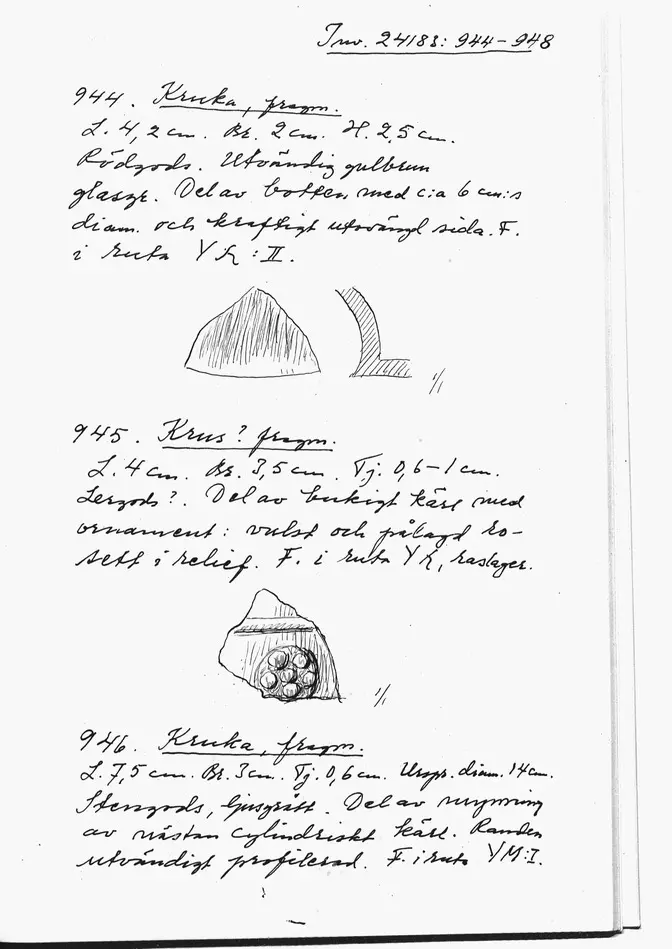 Inv. 24183: 944-948
944. Kruka, fragm.
L. 4,2 cm. Br. 2 cm. H. 2,5 cm.
Rödgods. Utvändig gulbrun
glasyr. Del av botten med c:a 6 cm:s
diam. och kraftigt utsvängd sida. F.
i ruta YK:II.
1/1
945. Krus? fragm.
L. 4 cm. Br. 3,5 cm. Tj. 0,6-1 cm.
Lergods?. Del av bukigt kärl med
ornament: vulst och pålagd ro-
sett i relief. F. i ruta YK, raslager.
1/1
946. Kruka, fragm.
L. 7,5 cm. Br. 3 cm. Tj. 0,6 cm. Urspr. diam. 14 cm.
Stengods, ljusgrått. Del av mynning
av nästan cylindriskt kärl. Randen
utvändigt profilerad. F. i ruta YM:I.